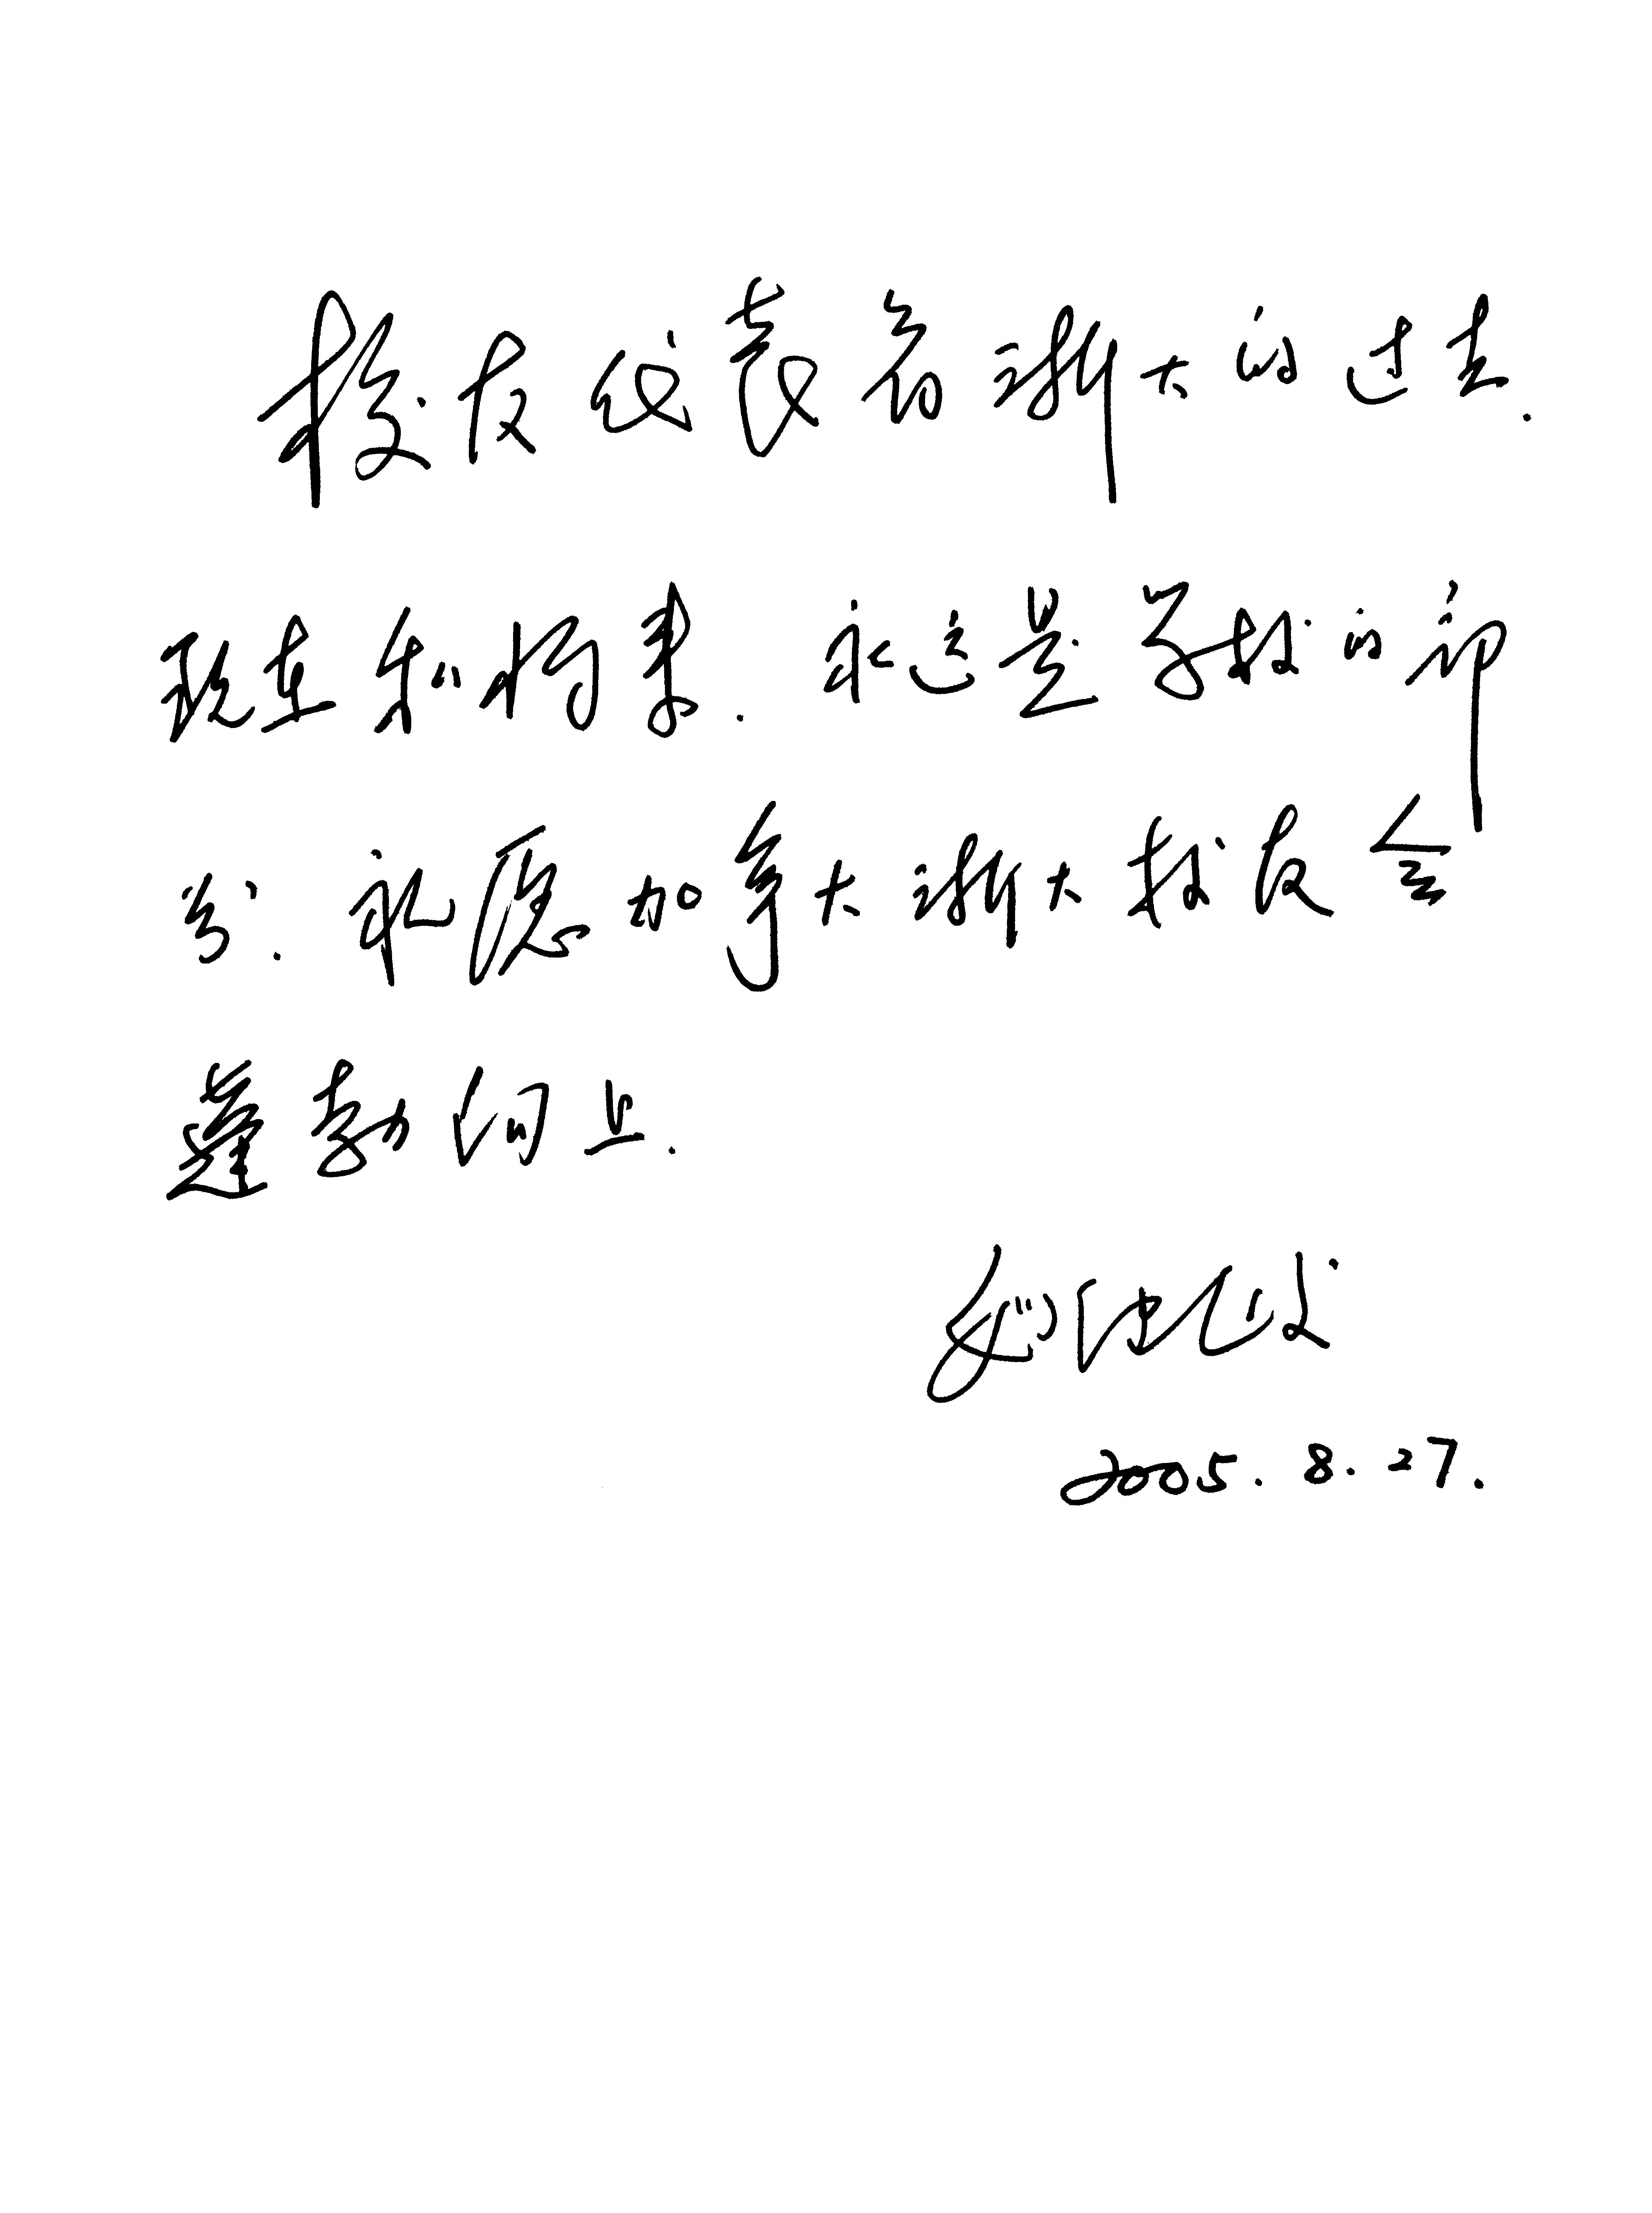 校友代表着浙大的过去.
现在和将来. 永远是学校的部
分. 祝愿加拿大浙大校友会
蓬勃向上.
2005. 8. 27.